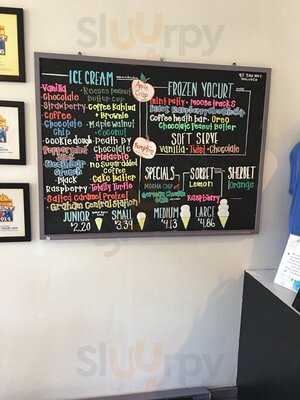 Sluurpy
ICE CREAM
Vanilla
Chocolate
Strawberry
Coffee
Chocolate
Chip
Cookie dough
Black
Raspberry
Salted Caramel Pretzel
Graham Central Station
Reeses peanut
butter cup
Coffee Kahlua
+ Brownie
Maple walnut
Coconut
death by
Chocolate
Pistachio
no sugar added
Coffee
Cake Batter
Totally Turtle
Apple
Crisp
Pumpkin
FROZEN YOGURT
mint patty • moose tracks
Coffee heath bar • Oreo
Chocolate Peanut Butter
SOFT SERVE
Vanilla • Twist • Chocolate
SPECIALS
SORBET
Lemon
Raspberry
SHERBET
Orange
JUNIOR
$2.20
SMALL
$3.34
MEDIUM
$4.13
LARGE
$4.86
2014
Sluurpy